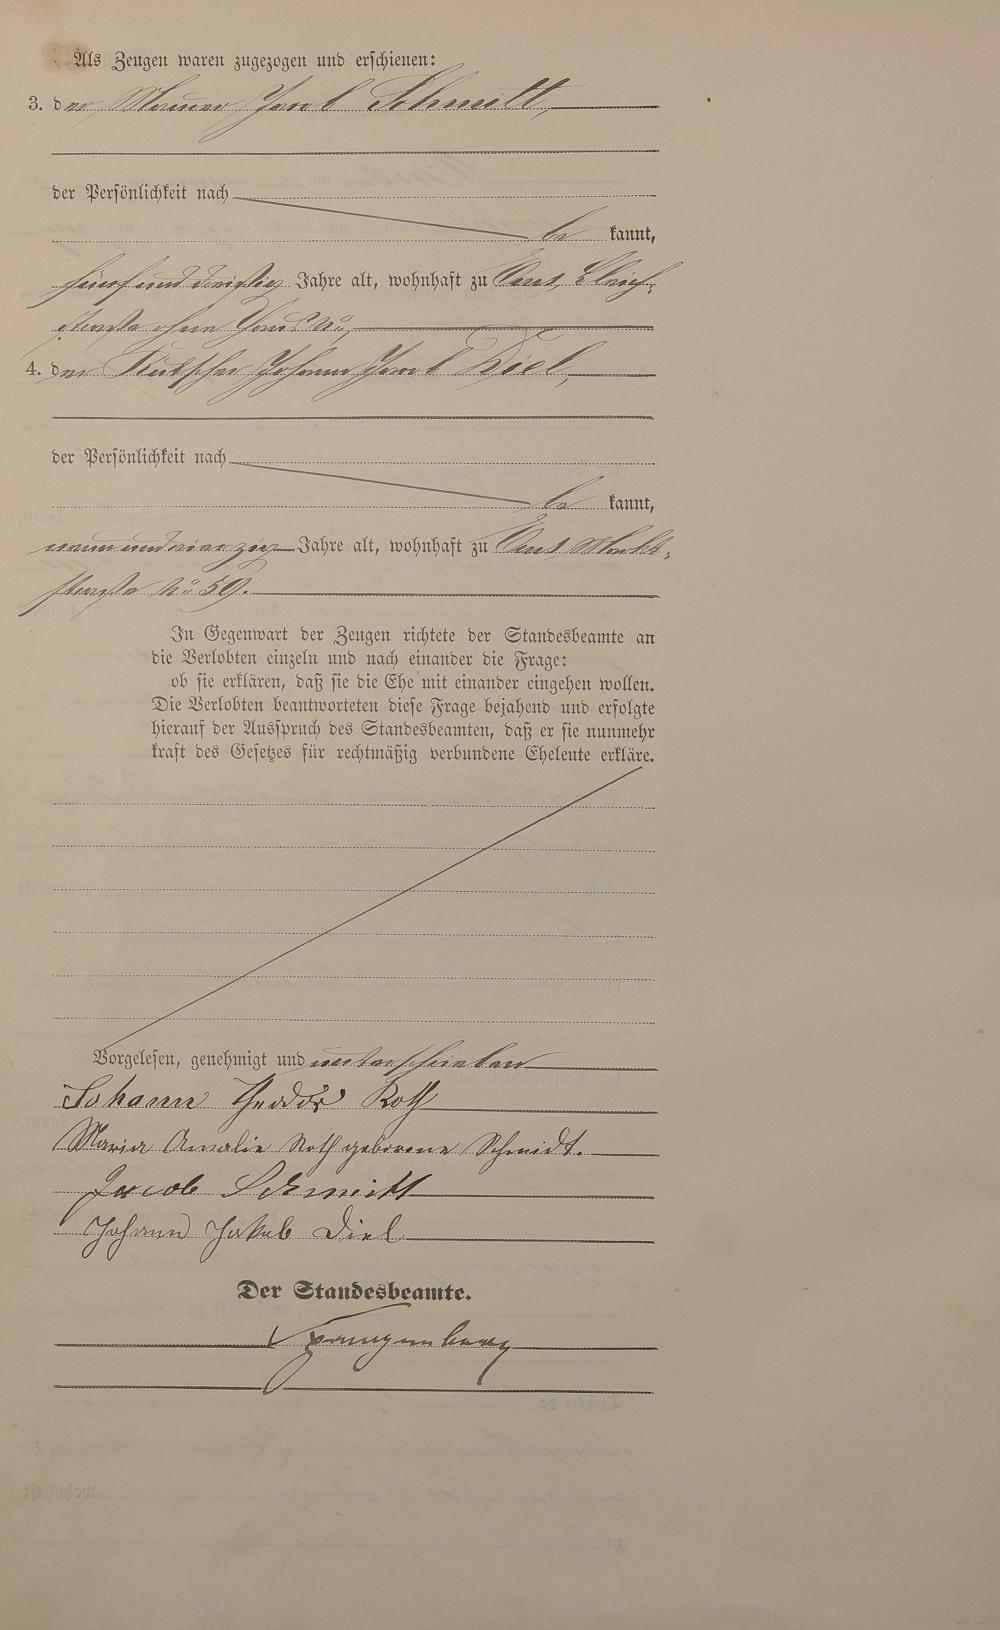 Als Zeugen waren zugezogen und erschienen:
3. der Maurer Jacob Schmitt,
der Persönlichkeit nach
be kannt,
fünfunddreißig Jahre alt, wohnhaft zu Ems, Bleich-
straße ohne Haus No,
4. der Kutscher Johann Jacob Diel,
der Persönlichkeit nach
be kannt,
neunundvierzig Jahre alt, wohnhaft zu Ems Markt-
straße No 59.
In Gegenwart der Zeugen richtete der Standesbeamte an
die Verlobten einzeln und nach einander die Frage:
ob sie erklären, daß sie die Ehe mit einander eingehen wollen.
Die Verlobten beantworteten diese Frage bejahend und erfolgte
hierauf der Ausspruch des Standesbeamten, daß er sie nunmehr
kraft des Gesetzes für rechtmäßig verbundene Eheleute erkläre.
Vorgelesen, genehmigt und unterschrieben
Johann Theodor Roth
Maria Amalie Roth geborene Schmidt.
Jacob Schmitt
Johann Jakob Diel
Der Standesbeamte.
Spangenberg